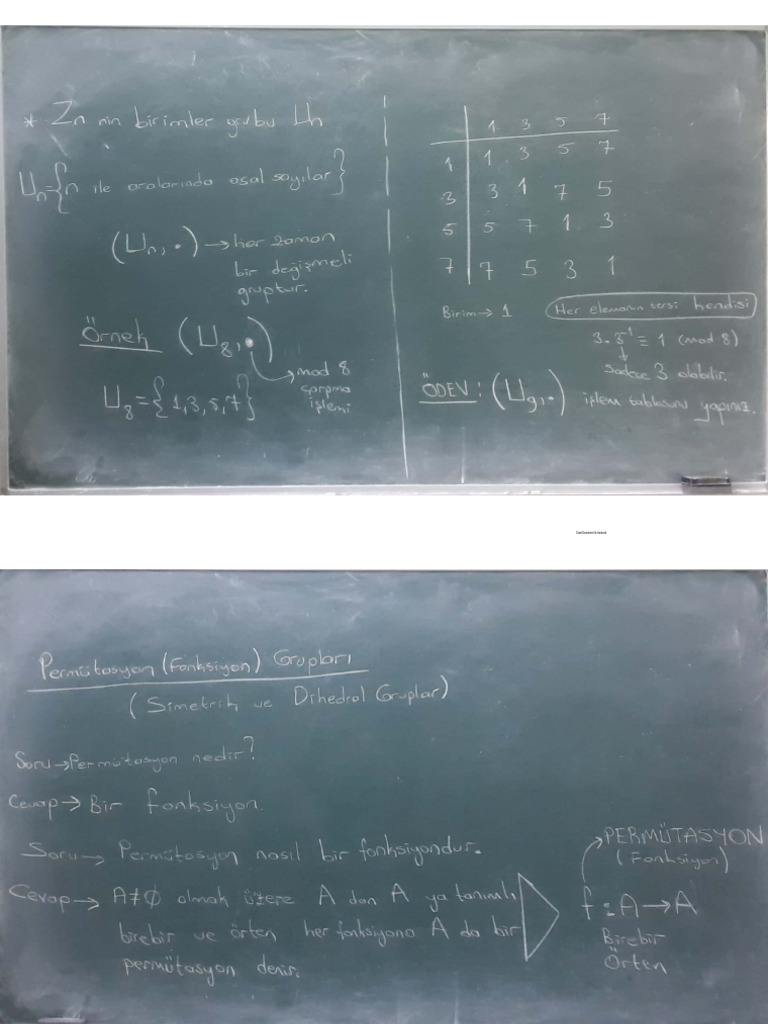 * Zn nin birimler grubu Un
Un={n ile aralarında asal sayılar}
(Un, •) → her zaman
bir değişmeli
gruptur.
Örnek (U8, •)
→ mod 8
çarpma
işlemi
U8={1,3,5,7}
1 3 5 7
1 1 3 5 7
3 3 1 7 5
5 5 7 1 3
7 7 5 3 1
Birim→ 1
Her elemanın tersi kendisi
3.3⁻¹ ≡ 1 (mod 8)
↓
sadece 3 olabilir.
ÖDEV: (U9, •) işlem tablosunu yapınız.
Permütasyon (Fonksiyon) Grupları
(Simetrik ve Dihedral Gruplar)
Soru→Permütasyon nedir?
Cevap→ Bir fonksiyon.
Soru→ Permütasyon nasıl bir fonksiyondur.
Cevap→ A≠∅ olmak üzere A dan A ya tanımlı,
birebir ve örten her fonksiyona A da bir
permütasyon denir.
→PERMÜTASYON
(Fonksiyon)
f: A→A
Birebir
Örten